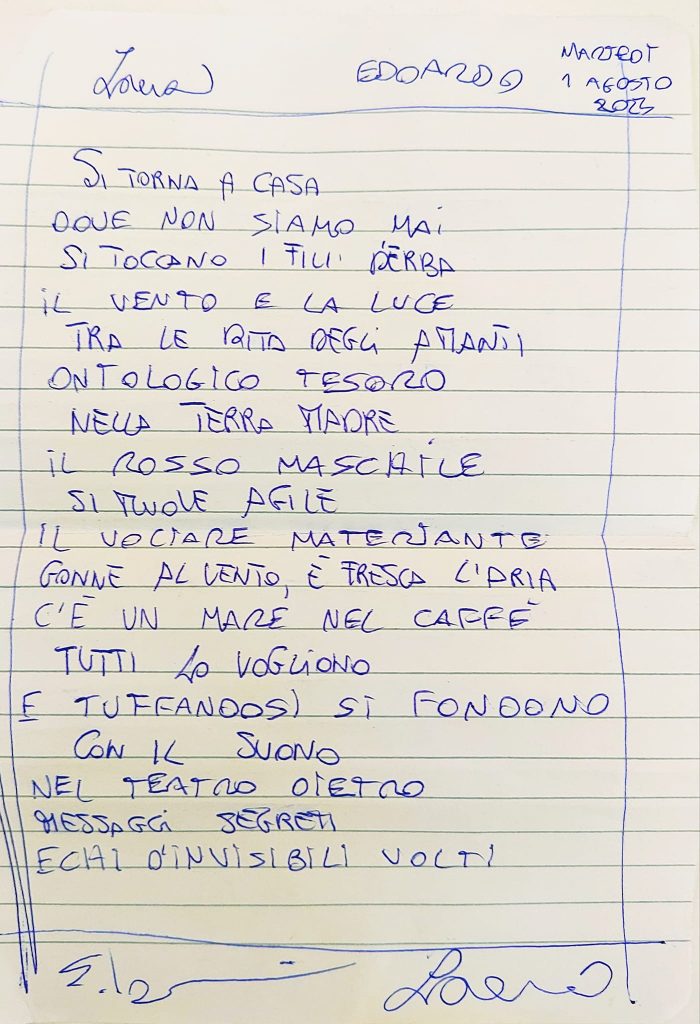 Laura EDOARDO MARTEDÌ
1 AGOSTO
2023
SI TORNA A CASA
DOVE NON SIAMO MAI
SI TOCCANO I FILI D'ERBA
IL VENTO E LA LUCE
TRA LE DITA DEGLI AMANTI
ONTOLOGICO TESORO
NELLA TERRA MADRE
IL ROSSO MASCHILE
SI MUOVE AGILE
IL VOCIARE MATERIANTE
GONNE AL VENTO, È FRESCA L'ARIA
C'È UN MARE NEL CAFFÈ
TUTTI LO VOGLIONO
E TUFFANDOSI SI FONDONO
CON IL SUONO
NEL TEATRO DIETRO
MESSAGGI SEGRETI
ECHI D'INVISIBILI VOLTI
Laura